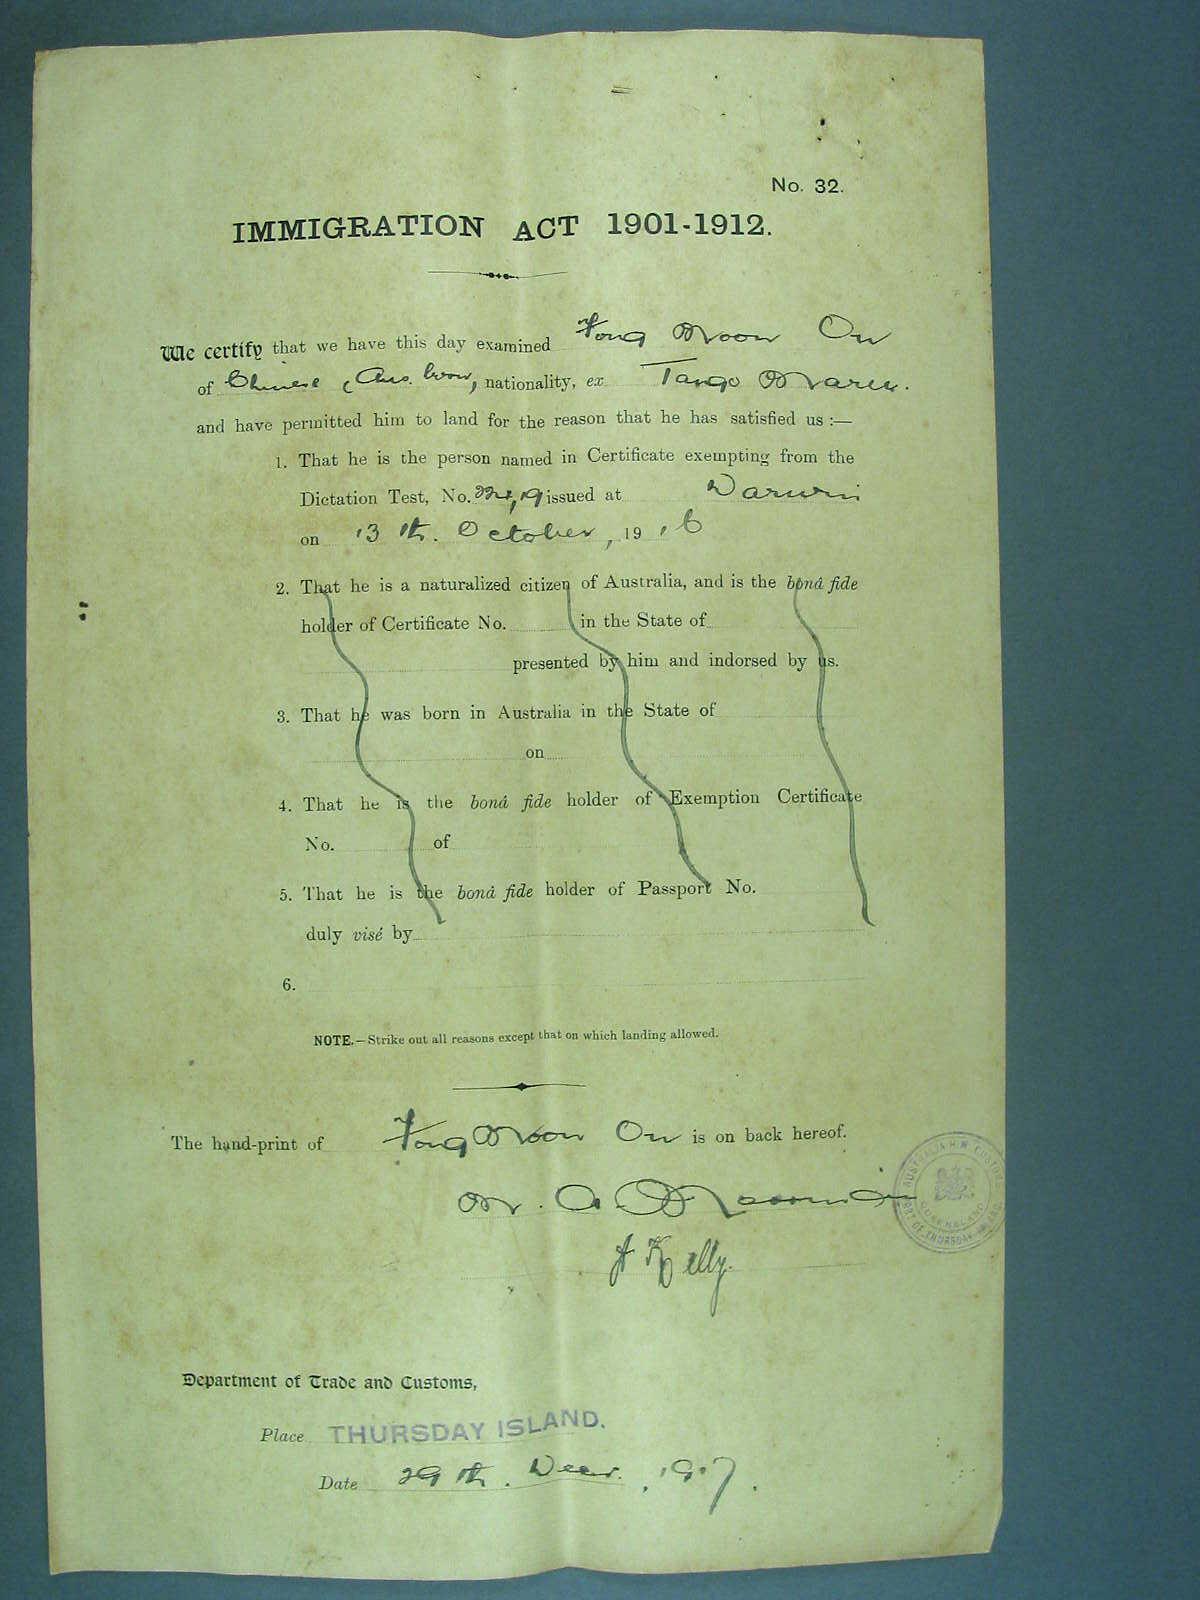 No. 32.
IMMIGRATION ACT 1901-1912.
We certify that we have this day examined Fong Moon On
of Chinese (Aus. born) nationality, ex Tango Maru.
and have permitted him to land for the reason that he has satisfied us :—
1. That he is the person named in Certificate exempting from the
Dictation Test, No. issued at Darwin
on 13th. October, 1916
2. That he is a naturalized citizen of Australia, and is the bonâ fide
holder of Certificate No. in the State of
presented by him and indorsed by us.
3. That he was born in Australia in the State of
on
4. That he is the bonâ fide holder of Exemption Certificate
No. of
5. That he is the bonâ fide holder of Passport No.
duly visé by
6.
NOTE.—Strike out all reasons except that on which landing allowed.
The hand-print of Fong Moon On is on back hereof.
Kelly.
AUSTRALIA H.M. CUSTOMS
QUEENSLAND
PORT OF THURSDAY ISLAND
Department of Trade and Customs,
Place THURSDAY ISLAND.
Date 29th. Decr. 1917.